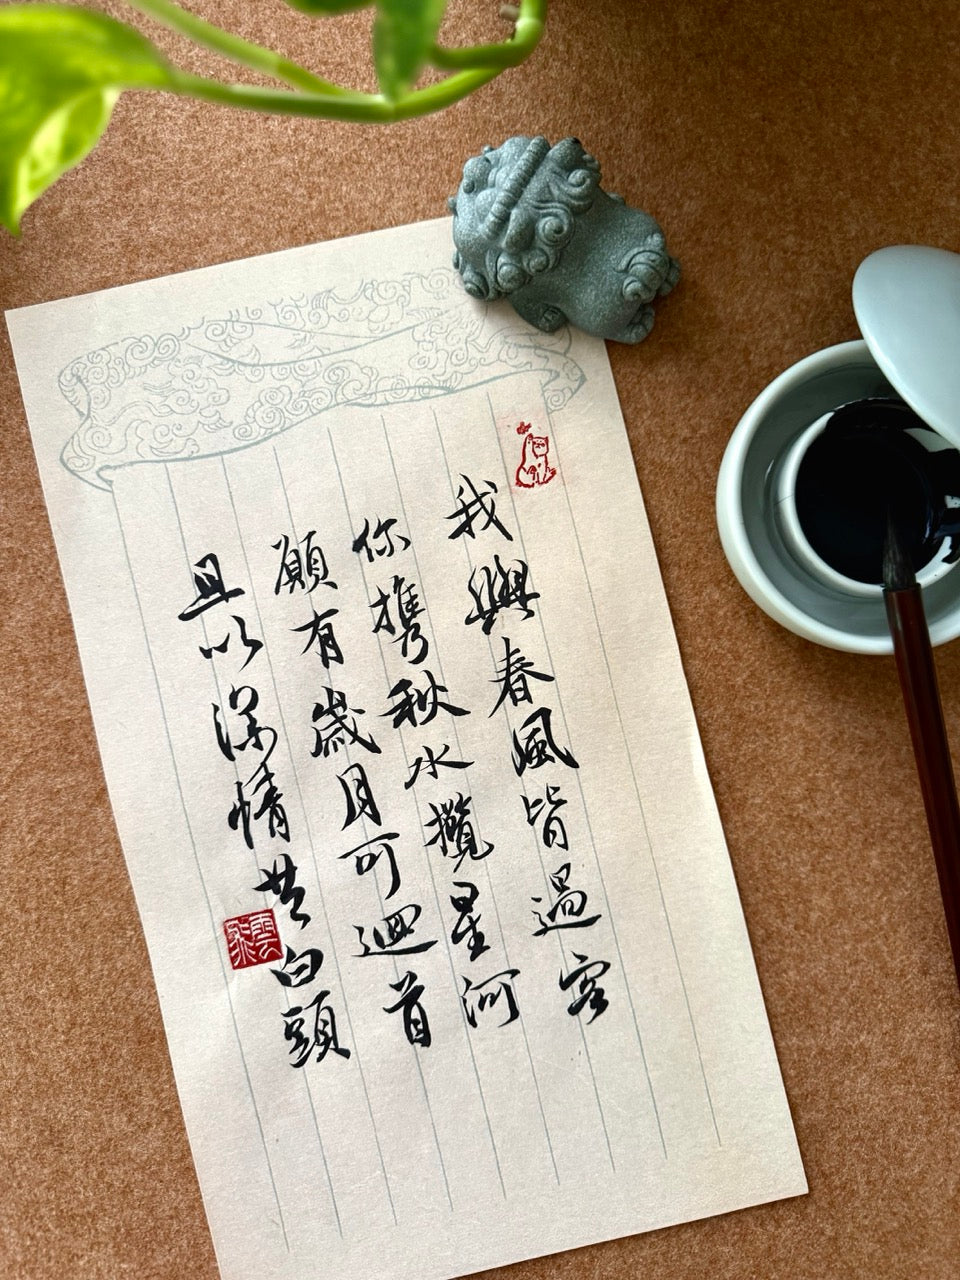 我與春風皆過客
你攜秋水攬星河
願有歲月可迴首
且以深情共白頭